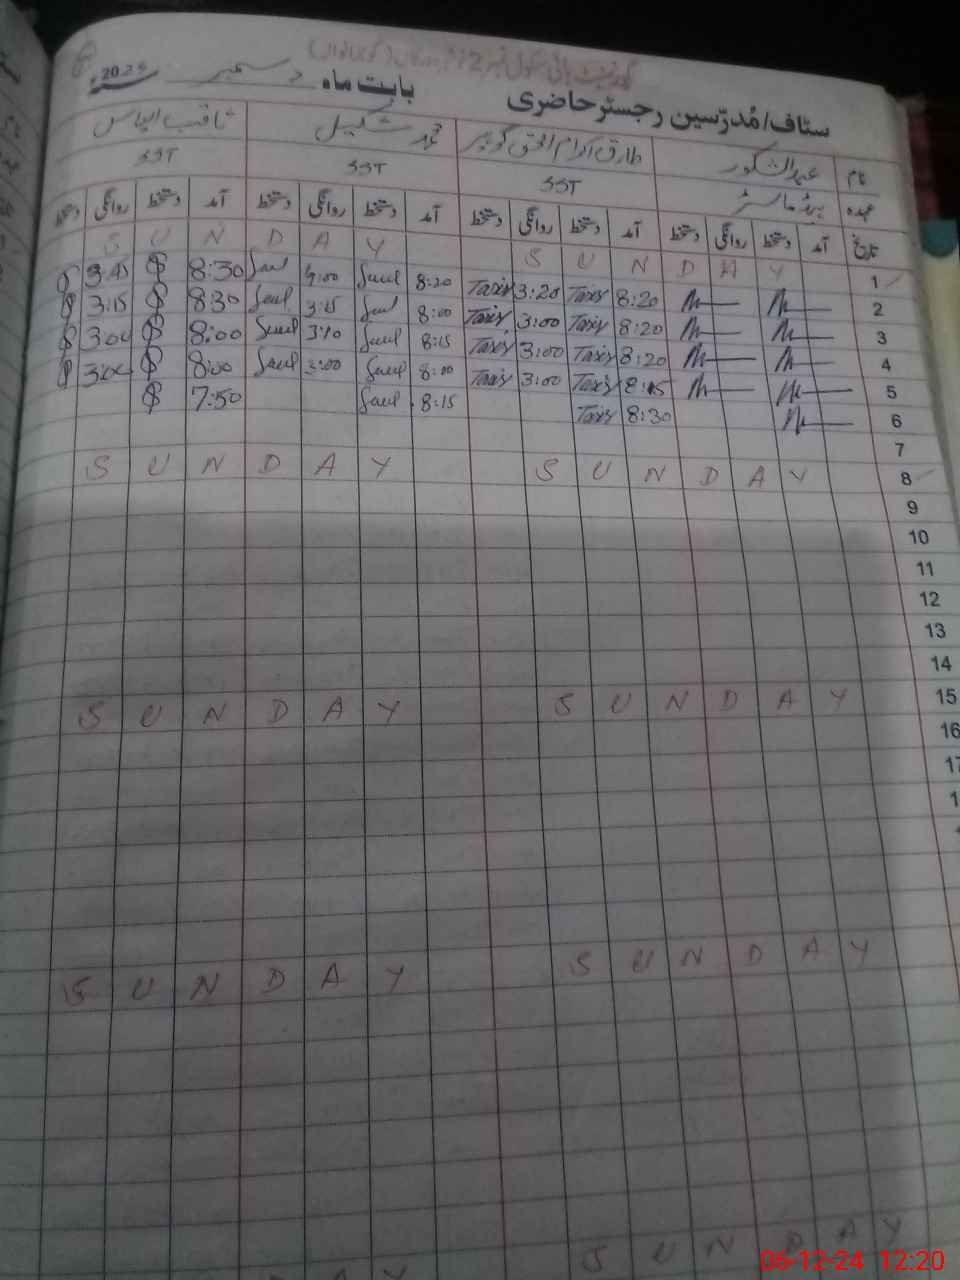 گورنمنٹ ہائی سکول نمبر 2
سٹاف/مُدرّسین رجسٹر حاضری بابت ماہ دسمبر 2024ء
نام عبدالشکور طارق اکرام الحق محمد شکیل ثاقب الیاس
عہدہ ہیڈ ماسٹر SST SST SST
تاریخ آمد دستخط روانگی دستخط آمد دستخط روانگی دستخط آمد دستخط روانگی دستخط آمد دستخط روانگی دستخط
1 S U N D A Y S U N D A Y
2 8:20 Taxis 3:20 Taxis 8:20 Saul 4:00 Saul 8:30 3:45
3 8:20 Taxis 3:00 Taxis 8:00 Saul 3:15 Saul 8:30 3:15
4 8:20 Taxis 3:00 Taxis 8:15 Saul 3:10 Saul 8:00 3:00
5 8:15 Taxis 3:00 Taxis 8:00 Saul 3:00 Saul 8:00 3:00
6 8:30 Taxis 8:15 Saul 7:50
7
8 S U N D A Y S U N D A Y
9
10
11
12
13
14
15 S U N D A Y S U N D A Y
16
17
S U N D A Y S U N D A Y
S U N D A Y A Y
06-12-24 12:20